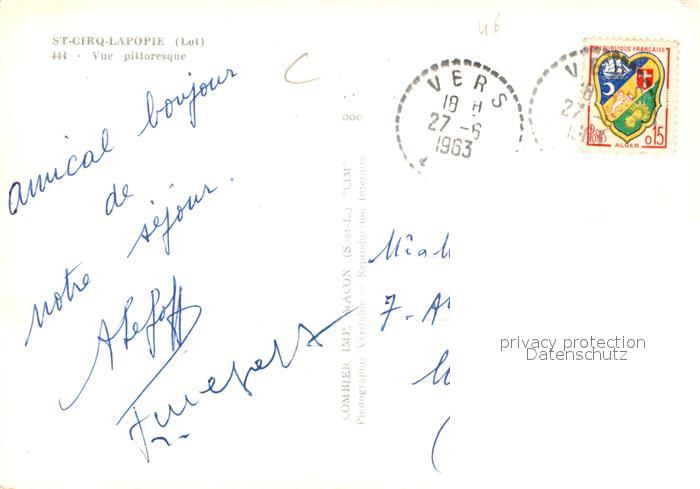 ST-CIRQ-LAPOPIE (Lot)
444 - Vue pittoresque
46
amical bonjour
de
notre séjour.
COMBIER IMP. MACON (S.-et-L.) "CIM"
Photographie Véritable - Reproduction Interdite
VERS
18 H
27-6
1963
VE
18
27
REPUBLIQUE FRANÇAISE
POSTES
0,15
ALGER
7-A
privacy protection
Datenschutz